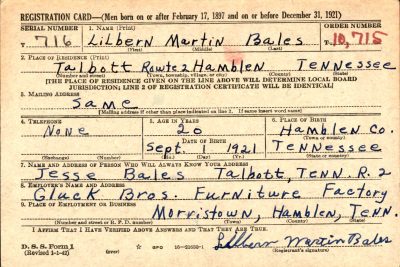 REGISTRATION CARD—(Men born on or after February 17, 1897 and on or before December 31, 1921)
SERIAL NUMBER 1. NAME (Print) ORDER NUMBER
T 716 Lilbern Martin Bales T 10,715
(First) (Middle) (Last)
2. PLACE OF RESIDENCE (Print)
Talbott Route 2 Hamblen Tennessee
(Number and street) (Town, township, village, or city) (County) (State)
[THE PLACE OF RESIDENCE GIVEN ON THE LINE ABOVE WILL DETERMINE LOCAL BOARD
JURISDICTION; LINE 2 OF REGISTRATION CERTIFICATE WILL BE IDENTICAL]
3. MAILING ADDRESS
Same
[Mailing address if other than place indicated on line 2. If same insert word same]
4. TELEPHONE 5. AGE IN YEARS 6. PLACE OF BIRTH
None 20 Hamblen Co.
DATE OF BIRTH (Town or county)
Sept. 1 1921 Tennessee
(Exchange) (Number) (Mo.) (Day) (Yr.) (State or country)
7. NAME AND ADDRESS OF PERSON WHO WILL ALWAYS KNOW YOUR ADDRESS
Jesse Bales Talbott, Tenn. R. 2
8. EMPLOYER'S NAME AND ADDRESS
Gluck Bros. Furniture Factory
9. PLACE OF EMPLOYMENT OR BUSINESS
Morristown, Hamblen, Tenn.
(Number and street or R. F. D. number) (Town) (County) (State)
I AFFIRM THAT I HAVE VERIFIED ABOVE ANSWERS AND THAT THEY ARE TRUE.
D. S. S. Form 1 GPO Lilbern Martin Bales
(Revised 1-1-42) (over) (Registrant's signature)